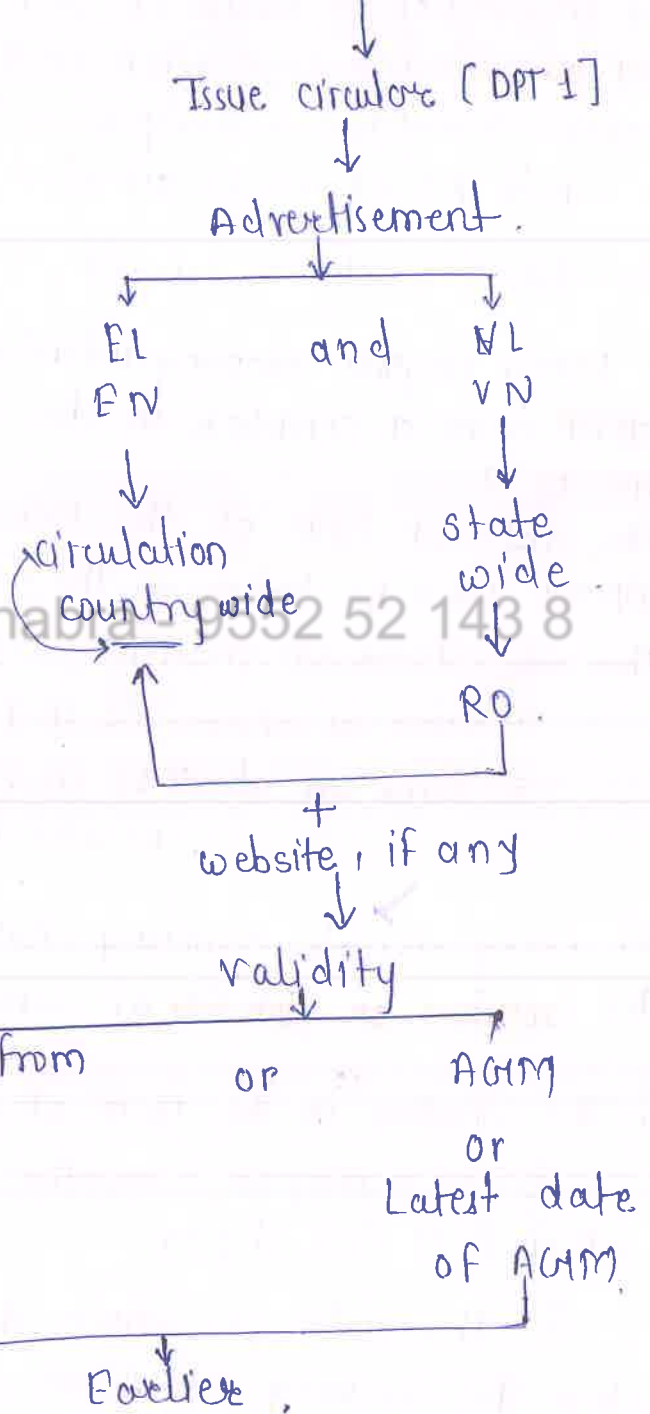 Issue circular [DPT 1]
Advertisement.
EL and VL
EN VN
circulation state
countrywide wide.
9552 52 143 8
RO.
+
website, if any
validity
from or AGM
or
Latest date
of AGM.
Earlier.